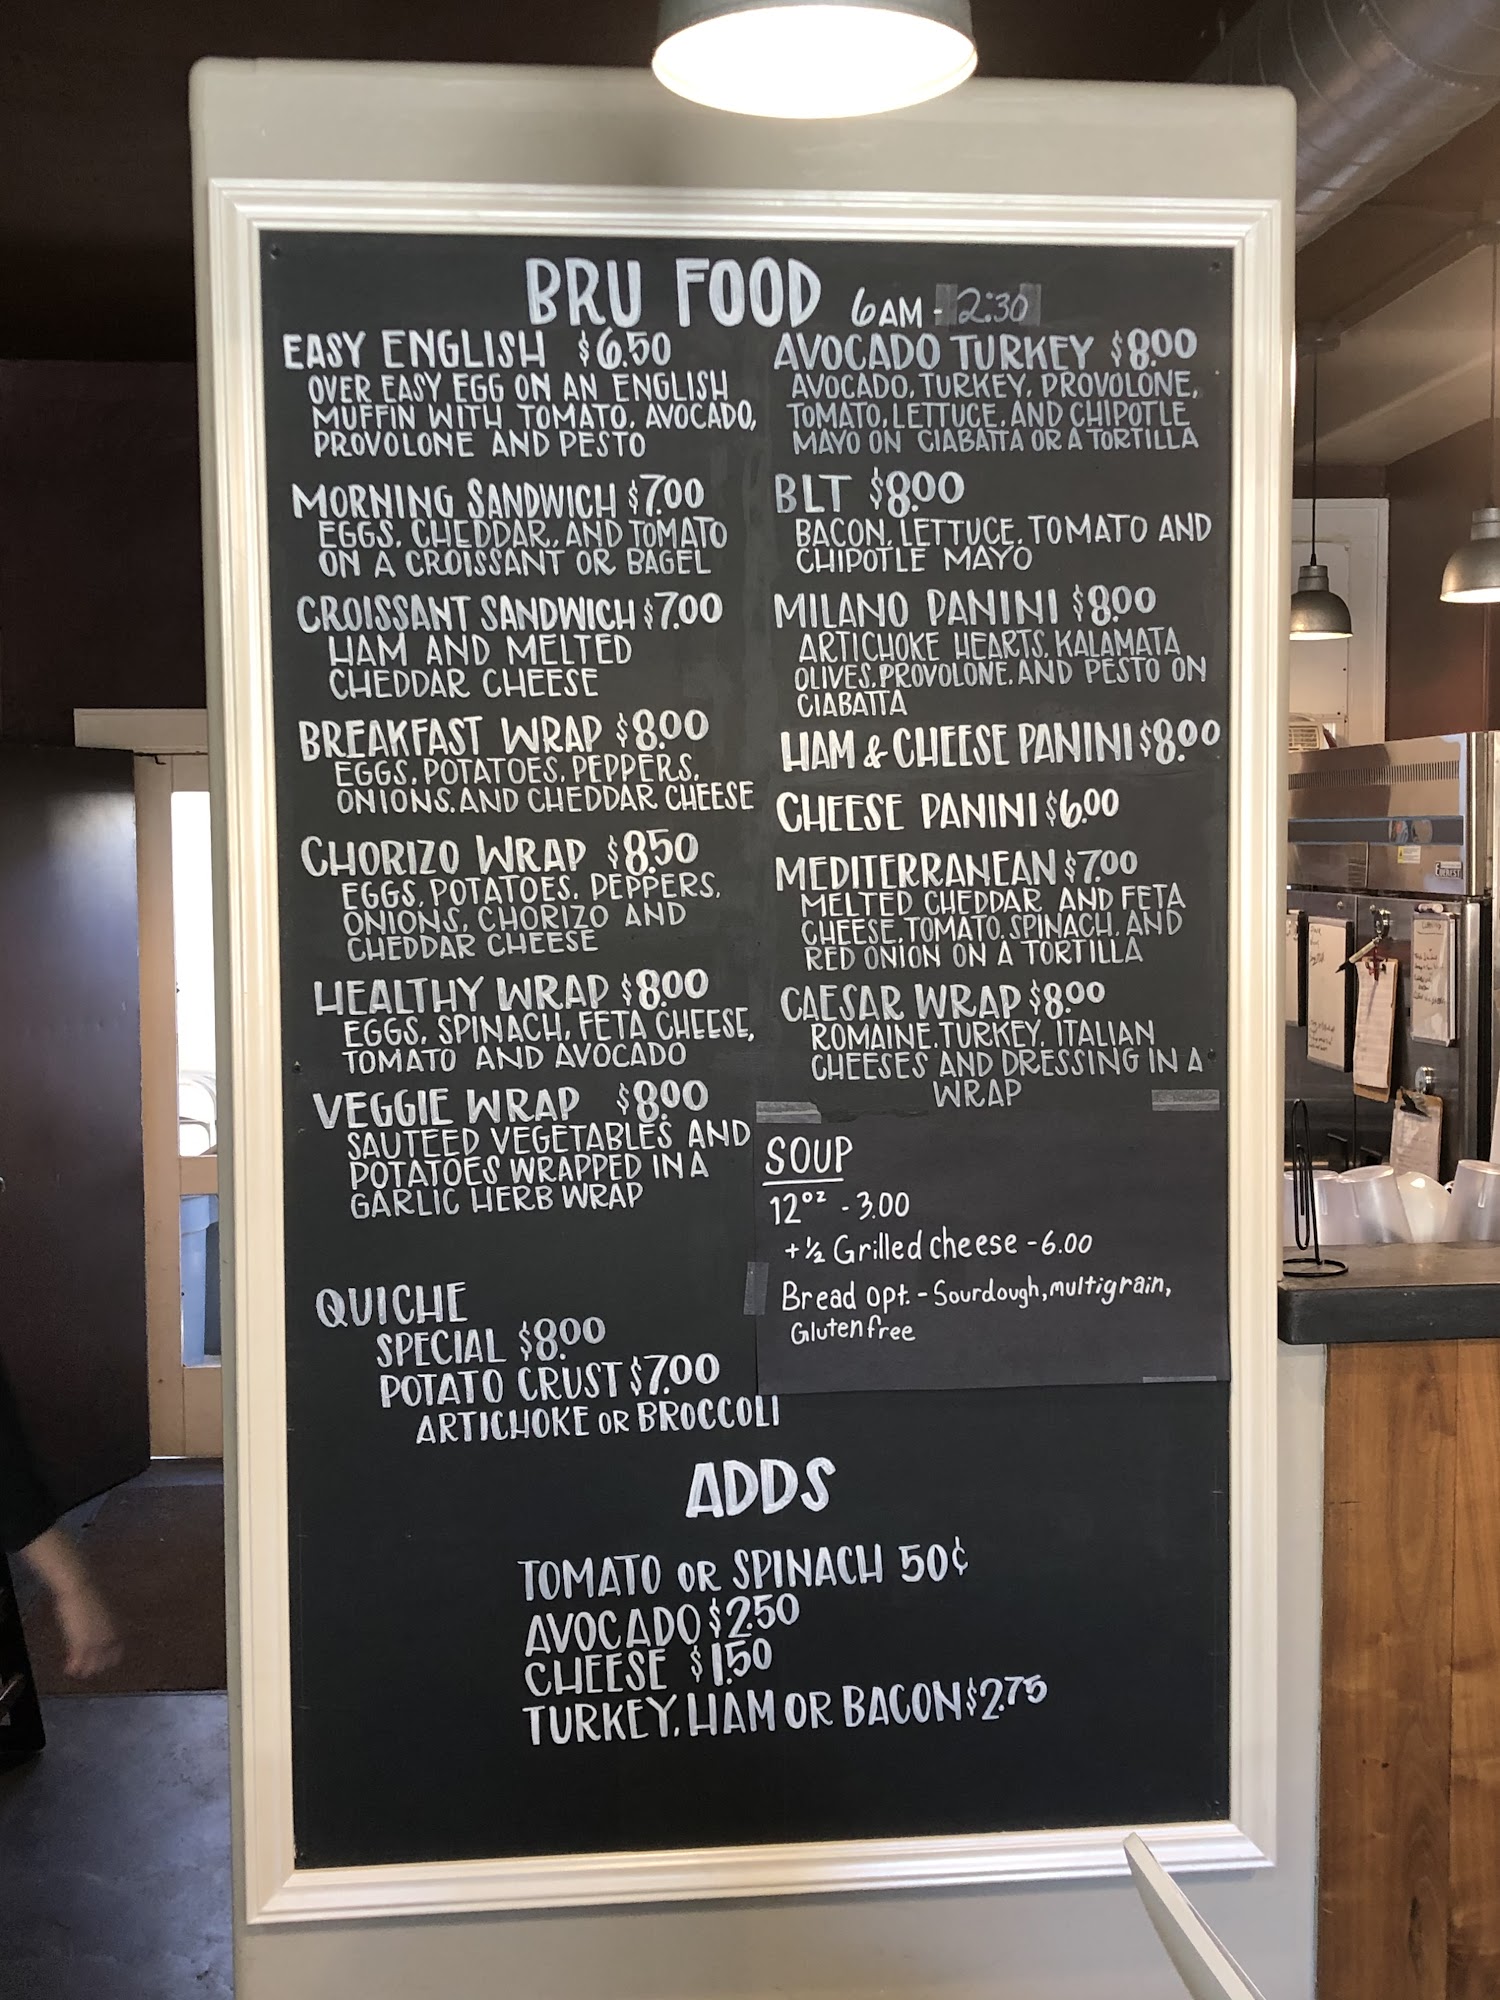 BRU FOOD 6AM - 2:30
EASY ENGLISH $6.50
OVER EASY EGG ON AN ENGLISH
MUFFIN WITH TOMATO, AVOCADO,
PROVOLONE AND PESTO
MORNING SANDWICH $7.00
EGGS, CHEDDAR, AND TOMATO
ON A CROISSANT OR BAGEL
CROISSANT SANDWICH $7.00
HAM AND MELTED
CHEDDAR CHEESE
BREAKFAST WRAP $8.00
EGGS, POTATOES, PEPPERS,
ONIONS, AND CHEDDAR CHEESE
CHORIZO WRAP $8.50
EGGS, POTATOES, PEPPERS,
ONIONS, CHORIZO AND
CHEDDAR CHEESE
HEALTHY WRAP $8.00
EGGS, SPINACH, FETA CHEESE,
TOMATO AND AVOCADO
VEGGIE WRAP $8.00
SAUTEED VEGETABLES AND
POTATOES WRAPPED IN A
GARLIC HERB WRAP
QUICHE
SPECIAL $8.00
POTATO CRUST $7.00
ARTICHOKE OR BROCCOLI
AVOCADO TURKEY $8.00
AVOCADO, TURKEY, PROVOLONE,
TOMATO, LETTUCE, AND CHIPOTLE
MAYO ON CIABATTA OR A TORTILLA
BLT $8.00
BACON, LETTUCE, TOMATO AND
CHIPOTLE MAYO
MILANO PANINI $8.00
ARTICHOKE HEARTS, KALAMATA
OLIVES, PROVOLONE, AND PESTO ON
CIABATTA
HAM & CHEESE PANINI $8.00
CHEESE PANINI $6.00
MEDITERRANEAN $7.00
MELTED CHEDDAR AND FETA
CHEESE, TOMATO, SPINACH, AND
RED ONION ON A TORTILLA
CAESAR WRAP $8.00
ROMAINE, TURKEY, ITALIAN
CHEESES AND DRESSING IN A
WRAP
SOUP
12oz - 3.00
+ ½ Grilled cheese - 6.00
Bread opt. - Sourdough, multigrain,
Gluten free
ADDS
TOMATO OR SPINACH 50¢
AVOCADO $2.50
CHEESE $1.50
TURKEY, HAM OR BACON $2.75